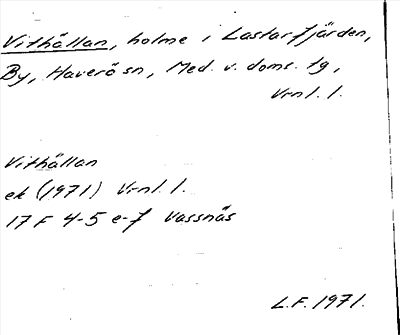 Vithällan, holme i Lastarfjärden,
By, Haverö sn, Med. v. doms. tg,
Vrnl. l.
Vithällan
ek (1971) Vrnl. l.
17 F 4-5 e-f Vassnäs
L.F. 1971.